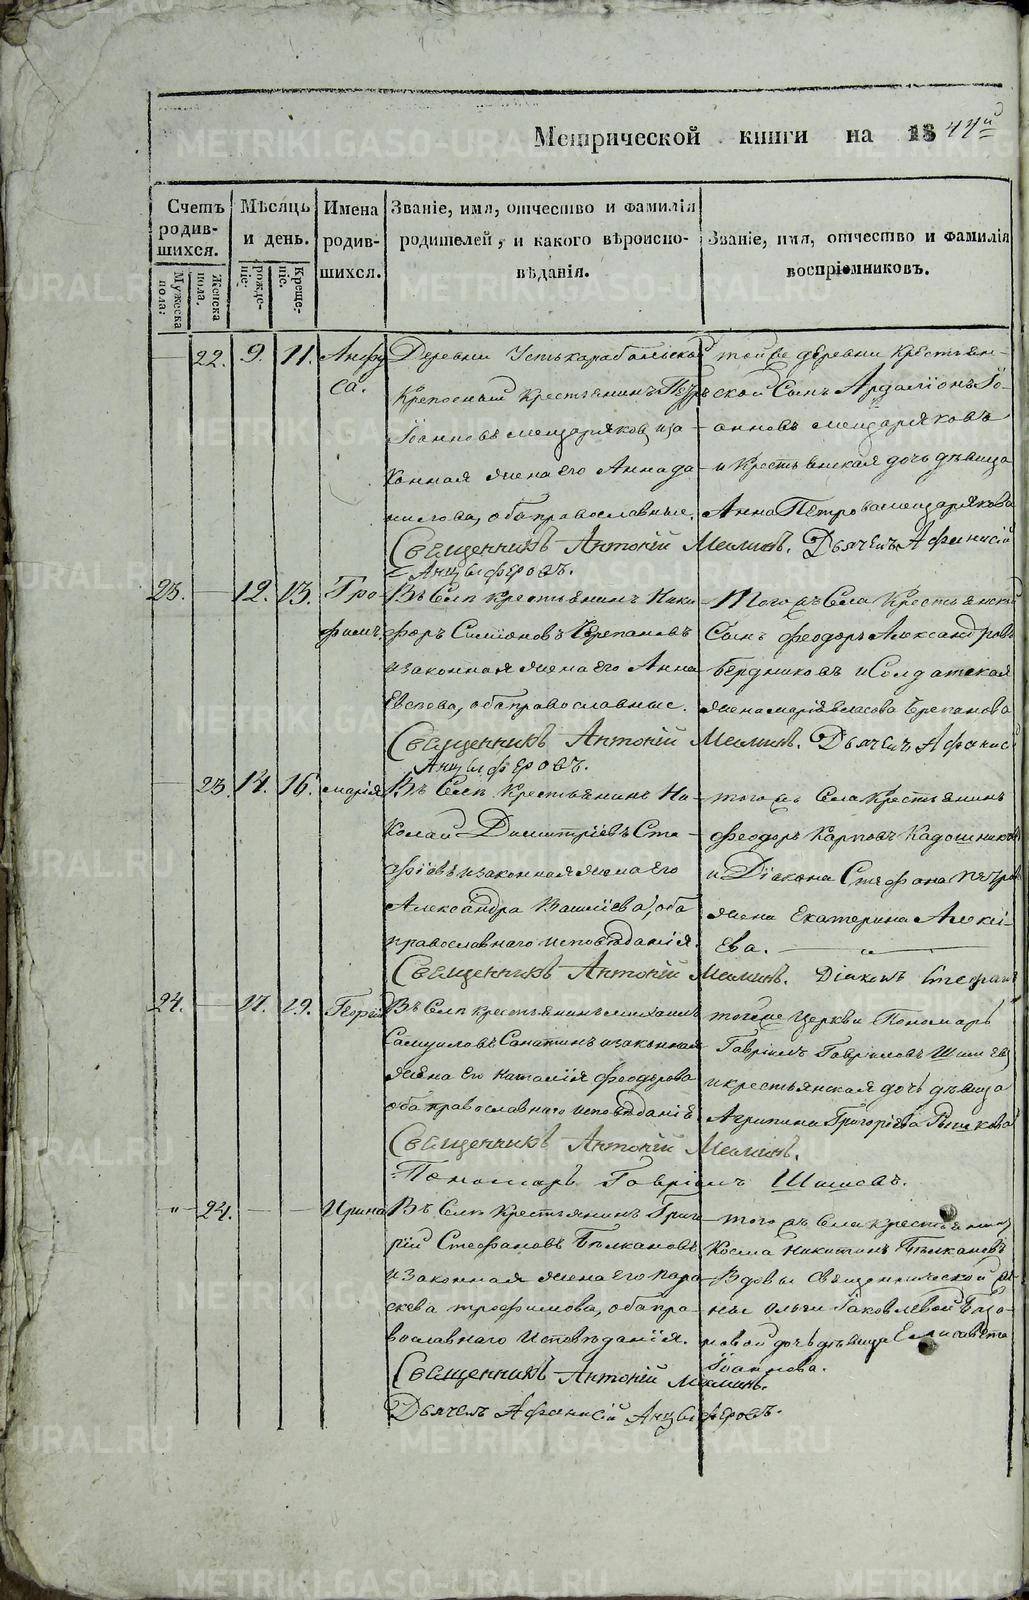 Метрической книги на 1844й
Счетъ родив-шихся.
Мужеска пола.
Женска пола.
Мѣсяцъ и день.
рожде-нія.
Креще-нія.
Имена родив-шихся.
Званіе, имя, отчество и фамилія родителей, и какого вѣроиспо-вѣданія.
Званіе, имя, отчество и фамилія воспріемниковъ.
22. 9. 11. Анфу
са.
Деревни Устькарабольской
Крепосный крестьянинъ Петръ
Іоанновъ мещеряковъ, и за
конная жена его Анна да
нилова, оба православные.
той же деревни Крестьян-
ской Сынъ Ардаліонъ Іо-
анновъ мещеряковъ
и Крестьянская дочь дѣвица
Анна Петрова мещерякова
Священникъ Антоній Маминъ. Дьячекъ Афанасій
Анцыферовъ.
23. 12. 13. Тро
фимъ.
Въ Селѣ крестьянинъ Ники
форъ Симіоновъ Черепановъ
и законная жена его Анна
Евсеева, оба православные.
Того жъ Села Крестьянской
Сынъ феодоръ Александровъ
Бердниковъ и Солдатская
жена марія Власова Черепанова
Священникъ Антоній Маминъ. Дьячекъ Афанасій
Анцыферовъ.
23. 14. 16. марія
Въ Селѣ Крестьянинъ Ни
колай Димитріевъ Сте
фіевъ и законная жена его
Александра Василіева, оба
православнаго исповѣданія.
того жъ Села крестьянинъ
феодоръ Карповъ Кадошниковъ
и Діакона Стефана Петрова
жена Екатерина Алексі-
ева.
Священникъ Антоній Маминъ. Діаконъ Стефанъ
24. 17. 19. Георгій
Въ Селѣ крестьянинъ михаилъ
Самуиловъ Санатинъ и законная
жена его наталія феодорова
оба православнаго исповѣданія
тоеже Церкви Пономарь
Гавріилъ Гавріиловъ Шишевъ
и крестьянская дочь дѣвица
Агрипина Григоріева
Священникъ Антоній Маминъ.
Пономарь Гавріилъ Шишевъ.
" 24. Ирина
Въ Селѣ Крестьянинъ Григо
рій Стефановъ Пелкановъ
и законная жена его пара
скева трофимова, оба пра-
вославнаго исповѣданія.
того жъ Села крестьянинъ
Косма Никитинъ Пелкановъ
Вдовы Священнической же
ны Ольги Іаковлевой
дочь дѣвица Елисавета
Іоаннова.
Священникъ Антоній Маминъ.
Дьячекъ Афанасій Анцыферовъ.